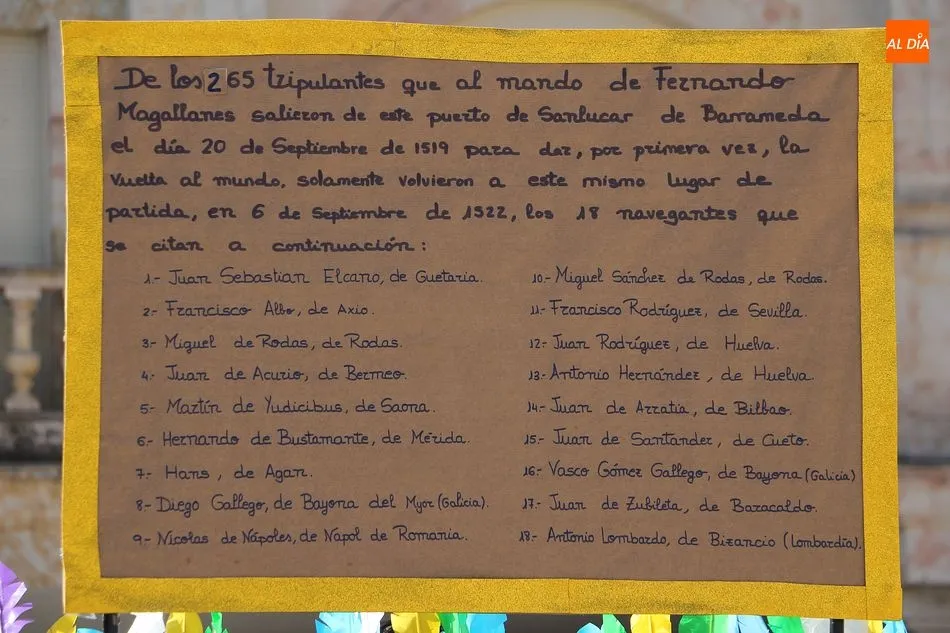 AL DÍA
De los 265 tripulantes que al mando de Fernando
Magallanes salieron de este puerto de Sanlucar de Barrameda
el día 20 de Septiembre de 1519 para dar, por primera vez, la
vuelta al mundo, solamente volvieron a este mismo lugar de
partida, en 6 de Septiembre de 1522, los 18 navegantes que
se citan a continuación:
1.- Juan Sebastian Elcano, de Guetaria.
2.- Francisco Albo, de Axio.
3.- Miguel de Rodas, de Rodas.
4.- Juan de Acurio, de Bermeo.
5.- Martín de Yudicibus, de Saona.
6.- Hernando de Bustamante, de Mérida.
7.- Hans, de Agan.
8.- Diego Gallego, de Bayona del Myor (Galicia).
9.- Nicolas de Nápoles, de Napol de Romania.
10.- Miguel Sánchez de Rodas, de Rodas.
11.- Francisco Rodríguez, de Sevilla.
12.- Juan Rodríguez, de Huelva.
13.- Antonio Hernández, de Huelva.
14.- Juan de Arratia, de Bilbao.
15.- Juan de Santander, de Cueto.
16.- Vasco Gómez Gallego, de Bayona (Galicia)
17.- Juan de Zubileta, de Baracaldo.
18.- Antonio Lombardo, de Bizancio (Lombardía).